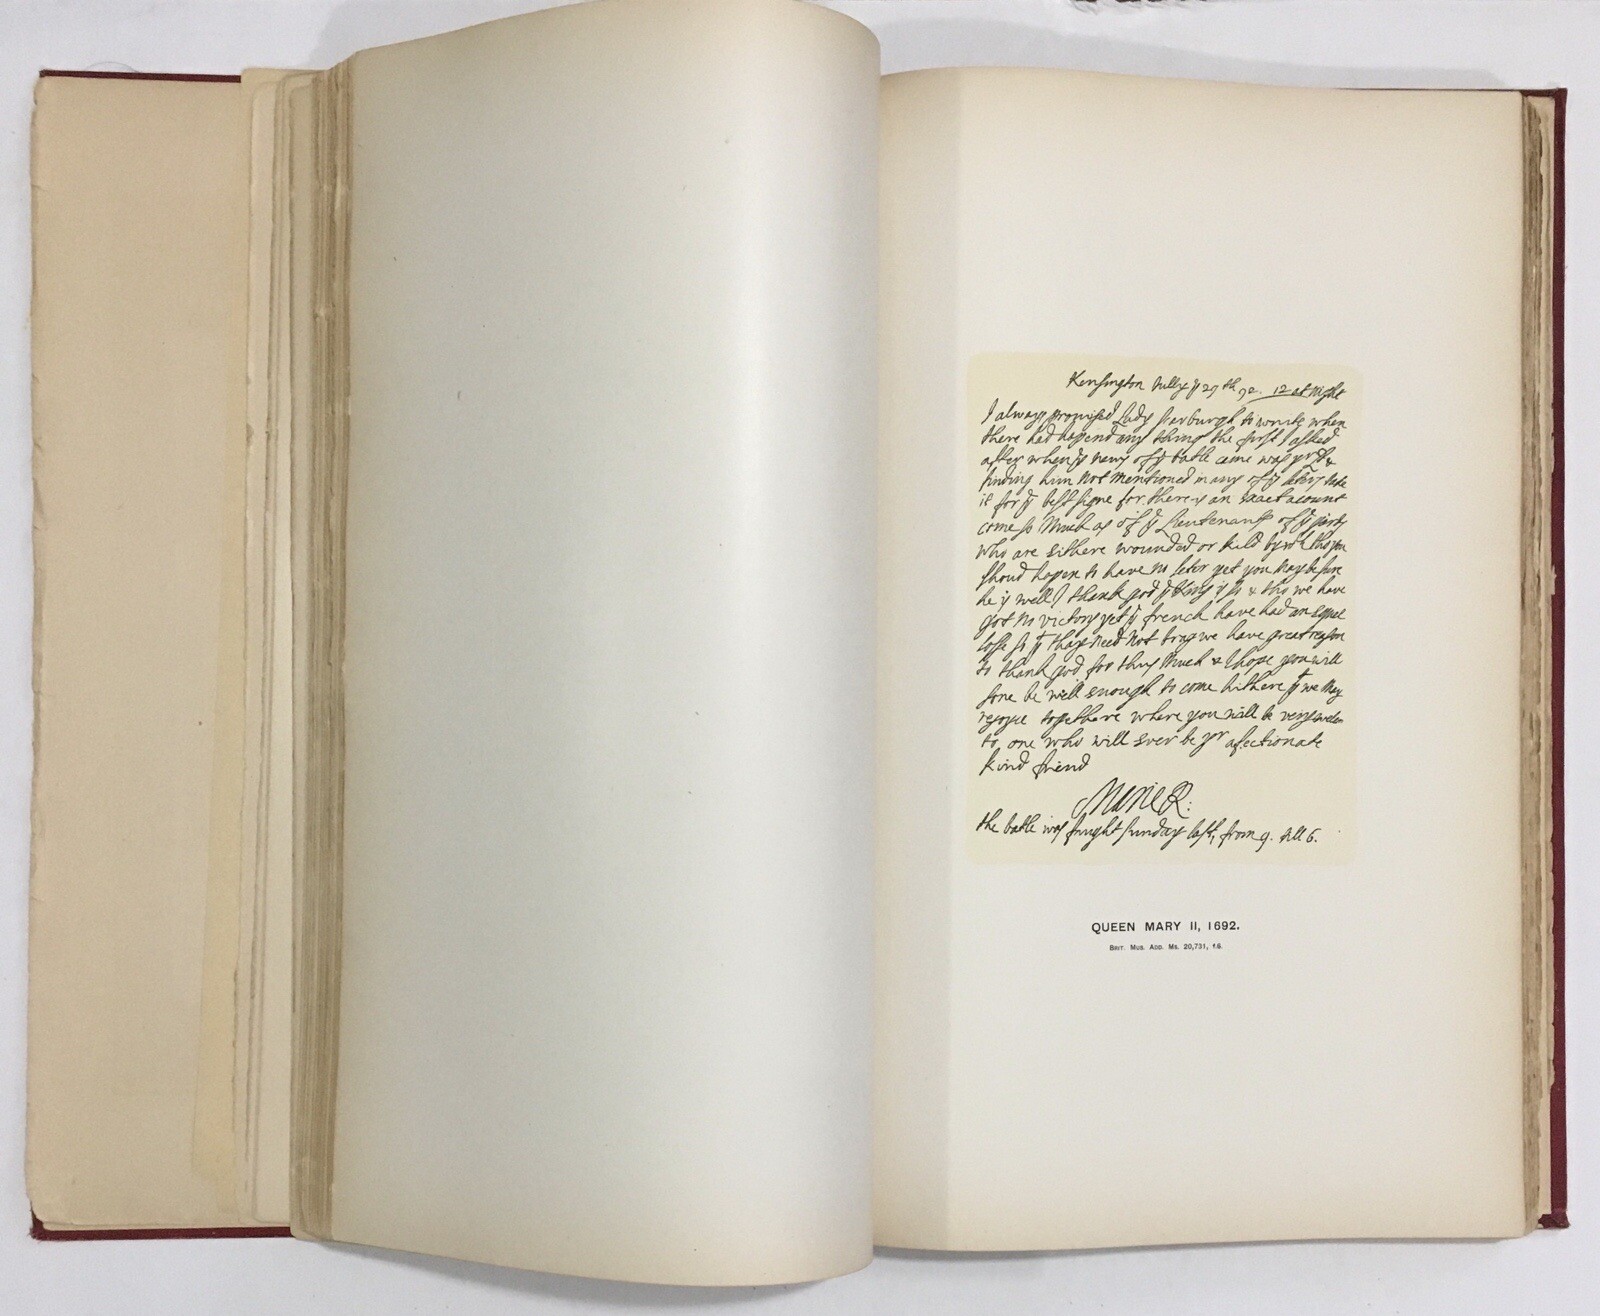 Kensington Jully yᵉ 29th 92. 12 at Night
I always promised Lady Roxburgh to write when
there had hapend any thing the first I asked
after when yᵉ news of yᵉ batle came was yʳ &
finding him not mentioned in any of yᵉ take
it for yᵉ best signe for there is an exact acount
come so Much as of yᵉ Lieutenants of yᵉ
who are eithere wounded or kild by tho you
shoud hapen to have no leter yet you may be sure
he is well I thank god yᵗ is so & tho we have
got no victory yet yᵉ french have had an equel
lose so yᵗ they need not brag we have great reason
to thank god for thus Much & I hope you will
sone be well enough to come hithere yᵗ we May
rejoyce togethere where you will be very welcom
to one who will ever be yʳ afectionate
kind friend
Marie R:
the batle was fought sunday last, from 9. till 6.
QUEEN MARY II, 1692.
BRIT. MUS. ADD. MS. 20,731, f.6.